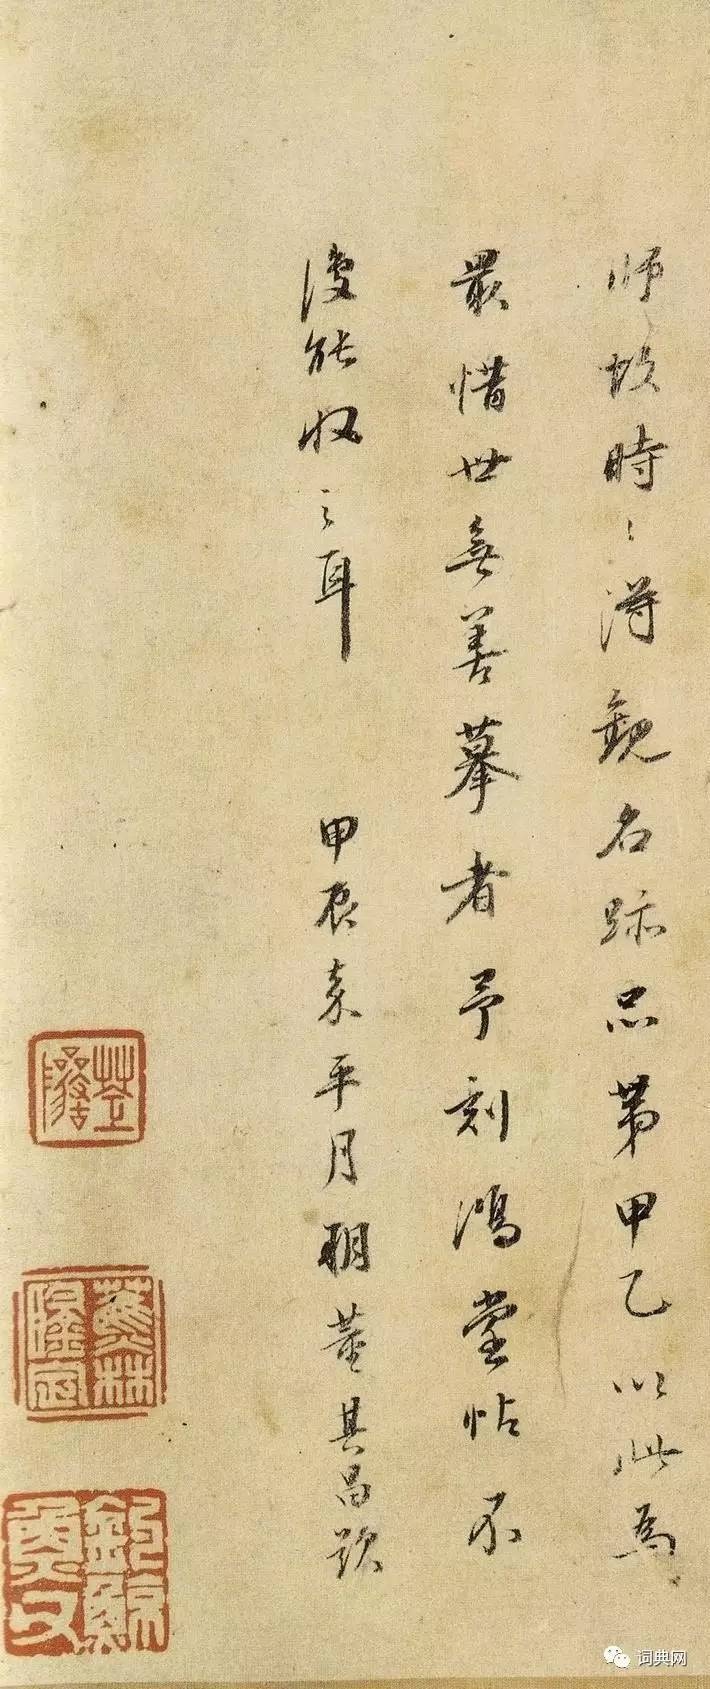 师故時々得觀名跡品第甲乙以此為
最惜世無善摹者予刻鴻堂帖不
復能收之耳
甲辰嘉平月 董其昌題
蕉林
词典网